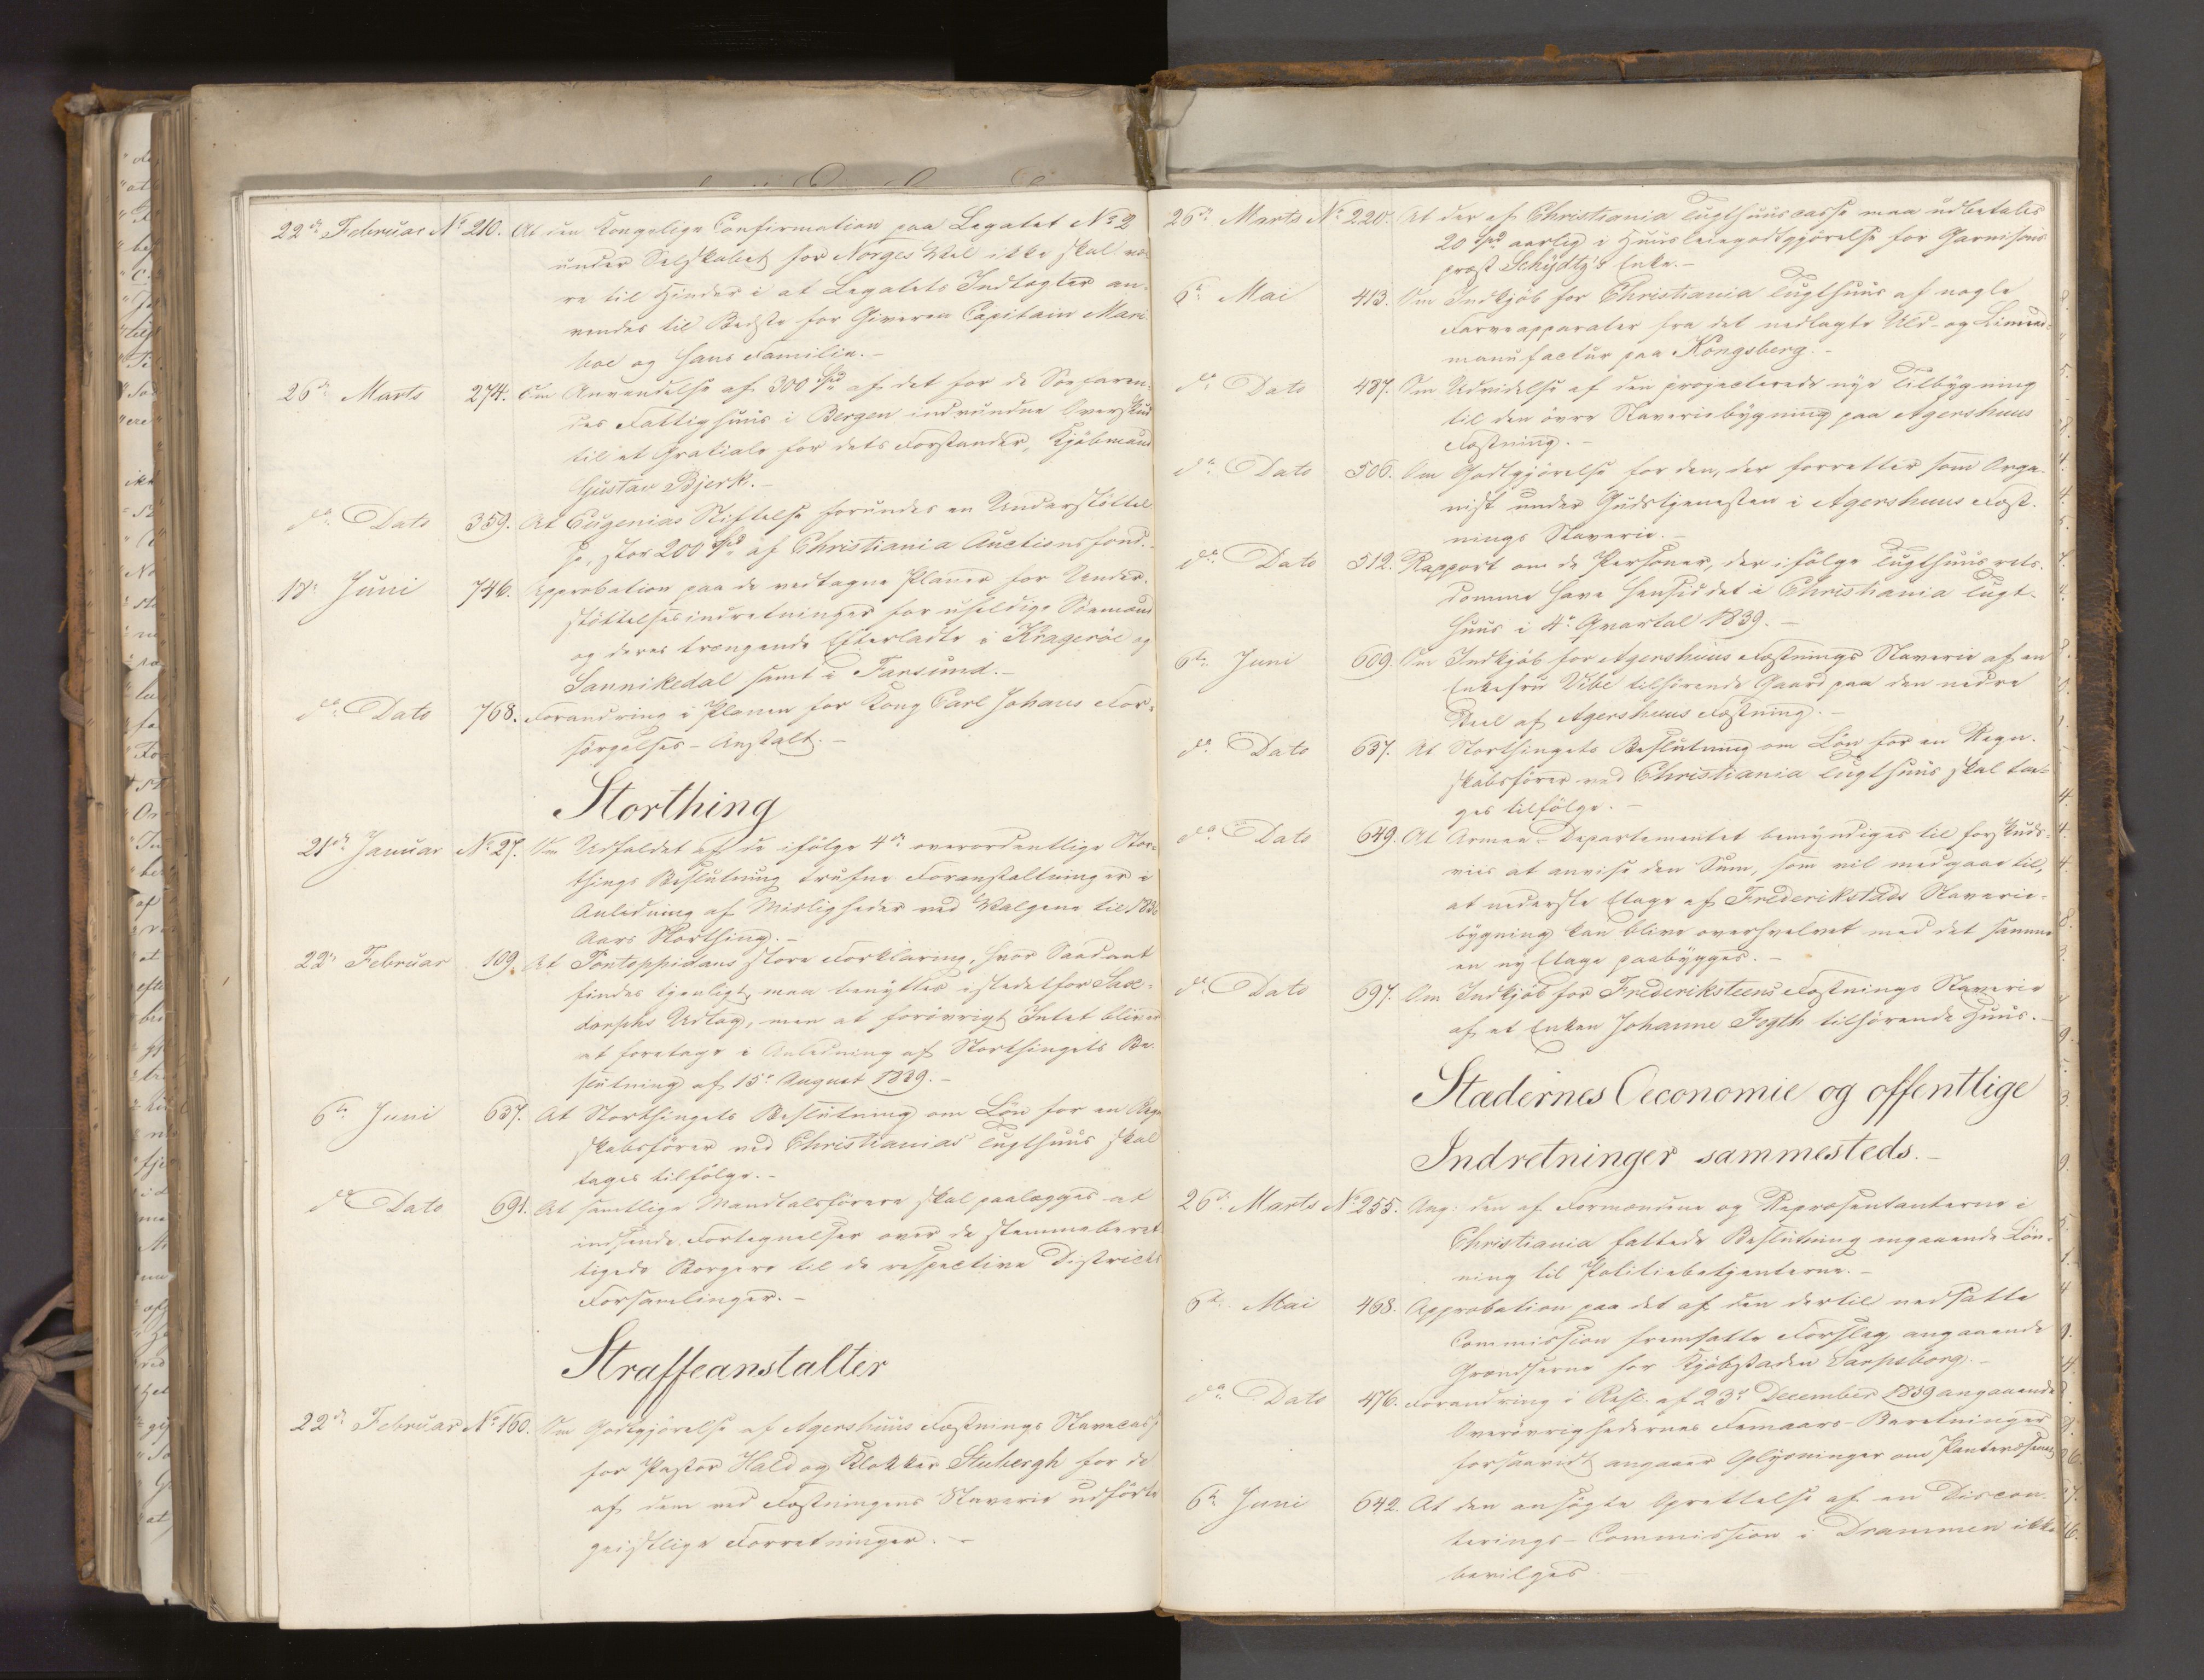 22de Februar No 210. At den Kongelige Confirmation paa Legatet No 2
under Selskabet for Norges Vel ikke skal væ
re til Hinder i at Legatets Indtægter an-
vendes til Bedste for Giveren Capitain Mari
boe og hans Familie.-
26de Marts 274. Om Anvendelse af 300 Spd af det for de Søefaren-
des Fattighuus i Bergen indvundne Overskud
til et Gratiale for dets Forstander, Kjöbmand
Gustav Bjerk.-
do Dato 359. At Eugenias Stiftelse forundes en Understöttel
se, stor 200 Spd af Christiania Auctionsfond.-
18de Juni 746. Approbation paa de vedtagne Planer for Under-
stöttelsesindretninger for uheldige Sömænd
og deres trængende Efterladte i Krageröe og
Sannikedal samt i Farsund.-
do Dato 768. Forandring i Planen for Kong Carl Johans For-
sörgelses-Anstalt.-
Storthing
21de Januar No 27. Om Udfaldet af de ifölge 4de overordentlige Stor-
things Beslutning trufne Foranstaltninger i
Anledning af Misligheder ved Valgene til 1836
Aars Storthing.-
22de Februar 109. At Pontoppidans store Forklaring, hvor Saadant
findes tjenligt, maa benyttes istedetfor Sax-
dorphs Udtog, men at forövrigt Intet bliver
at foretage i Anledning af Storthingets Be-
slutning af 15de August 1839.-
6te Juni 637. At Storthingets Beslutning om Lön for en Regn
skabsförer ved Christianias Tugthuus skal
tages tilfölge.-
do Dato 691. At samtlige Mandtalsförere skal paalægges at
indsende Fortegnelser over de stemmeberet
tigede Borgere til de respective Districts
Forsamlinger.-
Straffeanstalter
22de Februar No 160. Om Godtgjörelse af Agershuus Fæstnings Slavecasse
for Pastor Hald og Klokker Stubergh for de
af dem ved Fæstningens Slaverie udförte
geistlige Forretninger.-
26de Marts No 220. At der af Christiania Tugthuuscasse maa udbetales
20 Spd aarlig i Huusleiegodtgjörelse for Garnisons
præst Schydtz's Enke.-
6te Mai 413. Om Indkjöb for Christiania Tugthuus af nogle
Farveapparater fra det nedlagte Uld- og Linned-
manufactur paa Kongsberg.-
do Dato 487. Om Udvidelse af den projecterede nye Tilbygning
til den övre Slaveriebygning paa Agershuus
Fæstning.-
do Dato 506. Om Godtgjörelse for den, der forretter som Orga-
nist under Gudstjenesten i Agershuus Fæst-
nings Slaverie.-
do Dato 512. Rapport om de Personer, der ifölge Tugthuusrets-
domme have hensiddet i Christiania Tugt-
huus i 4de Qvartal 1839.-
6te Juni 609. Om Indkjöb for Agershuus Fæstnings Slaverie af en
Enkefru Vibe tilhörende Gaard paa den nedre
Deel af Agershuus Fæstning.-
do Dato 637. At Storthingets Beslutning om Lön for en Regn-
skabsförer ved Christiania Tugthuus skal ta-
ges tilfölge.-
do Dato 649. At Armee-Departementet bemyndiges til forskuds-
viis at anvise den Sum, som vil medgaae til,
at nederste Etage af Frederikstads Slaverie-
bygning kan blive overhvelvet med det samme
en ny Etage paabygges.-
do Dato 697. Om Indkjöb for Frederiksteens Fæstnings Slaverie
af et Enken Johanne Fogth tilhörende Huus.-
Stædernes Oeconomie og offentlige
Indretninger sammesteds.-
26de Marts No 255. Ang. den af Formændene og Repræsentanterne i
Christiania fattede Beslutning angaaende Lön-
ning til Politiebetjenterne.-
6te Mai 468. Approbation paa det af den dertil nedsatte
Commission fremsatte Forslag angaaende
Grændserne for Kjöbstaden Sarpsborg.-
do Dato 476. Forandring i Resl. af 23de December 1839 angaaende
Overövrighedernes Femaars-Beretninger
forsaavidt angaaer Oplysninger om Pantevæsenet
6te Juni 642. At den ansögte Oprettelse af en Discon-
terings-Commission i Drammen ikke
bevilges.